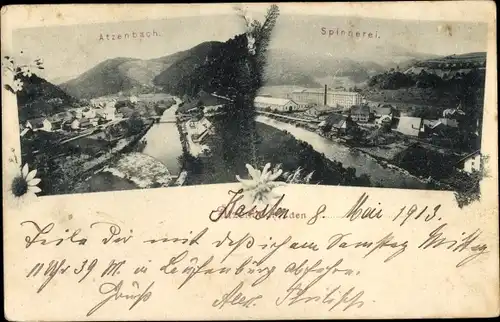 Atzenbach.
Spinnerei.
Hausen 8. Mai 1913.
Teile Dir mit daß ich am Samstag Mittag
11 Uhr 39 M. in abfahre.
Gruß Alex. Philipp